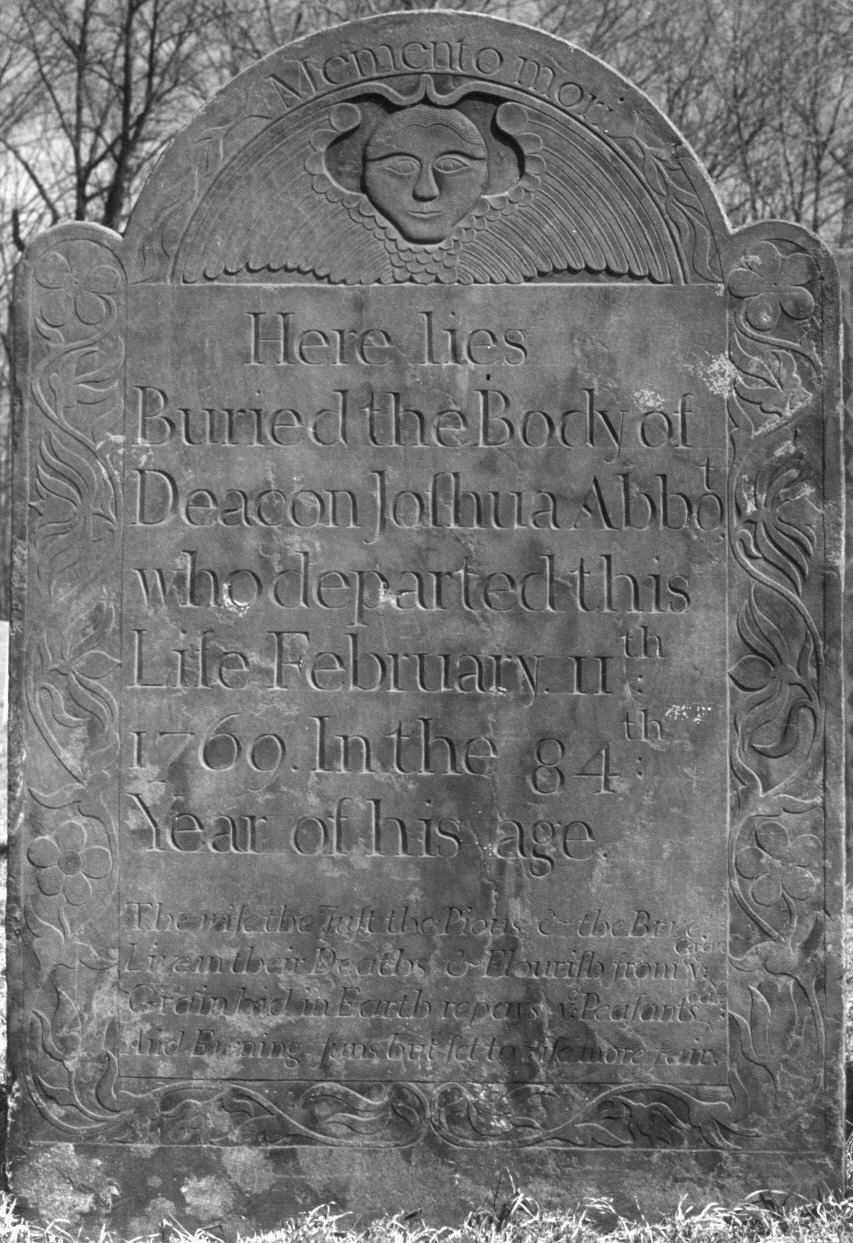 Memento mori
Here lies
Buried the Body of
Deacon Joſhua Abbot
who departed this
Life February. 11th:
1769. In the 84th:
Year of his age.
The wiſe the Juſt the Pious & the Brve
Live in their Deaths & Flouriſh from ye: Grave
Grain hid in Earth repays ye: Peaſants
And Evening ſuns but ſet to riſe more fair.